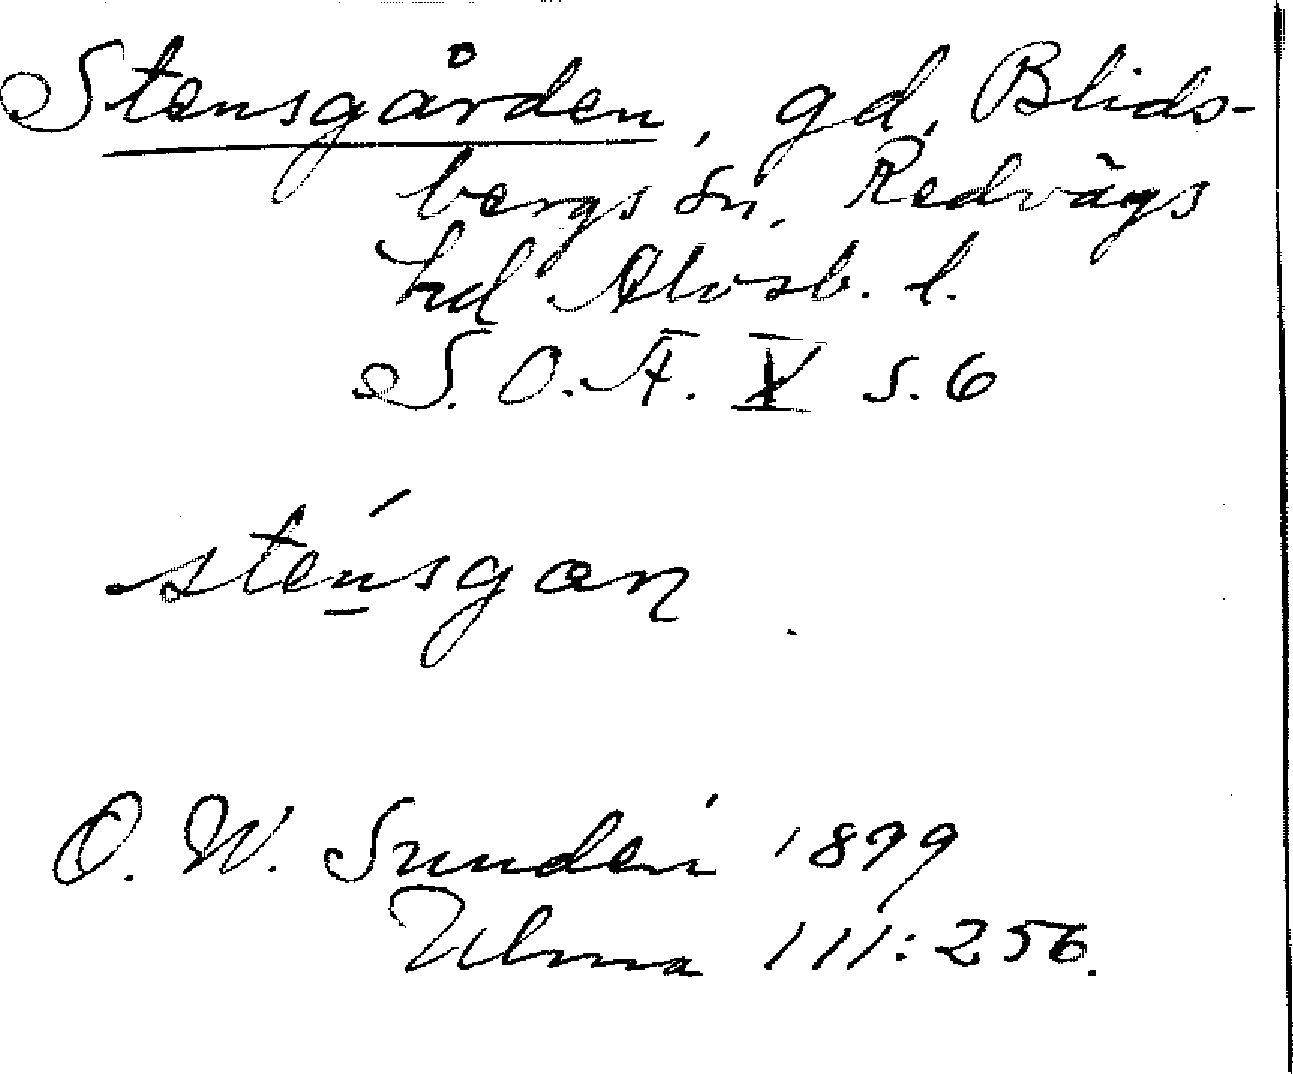 Stensgården, gd, Blids-
bergs sn, Redvägs
hd Älvsb. l.
S.O.Ä. X s. 6
stensgan
O. W. Sundén 1899
Ulma 111:256.